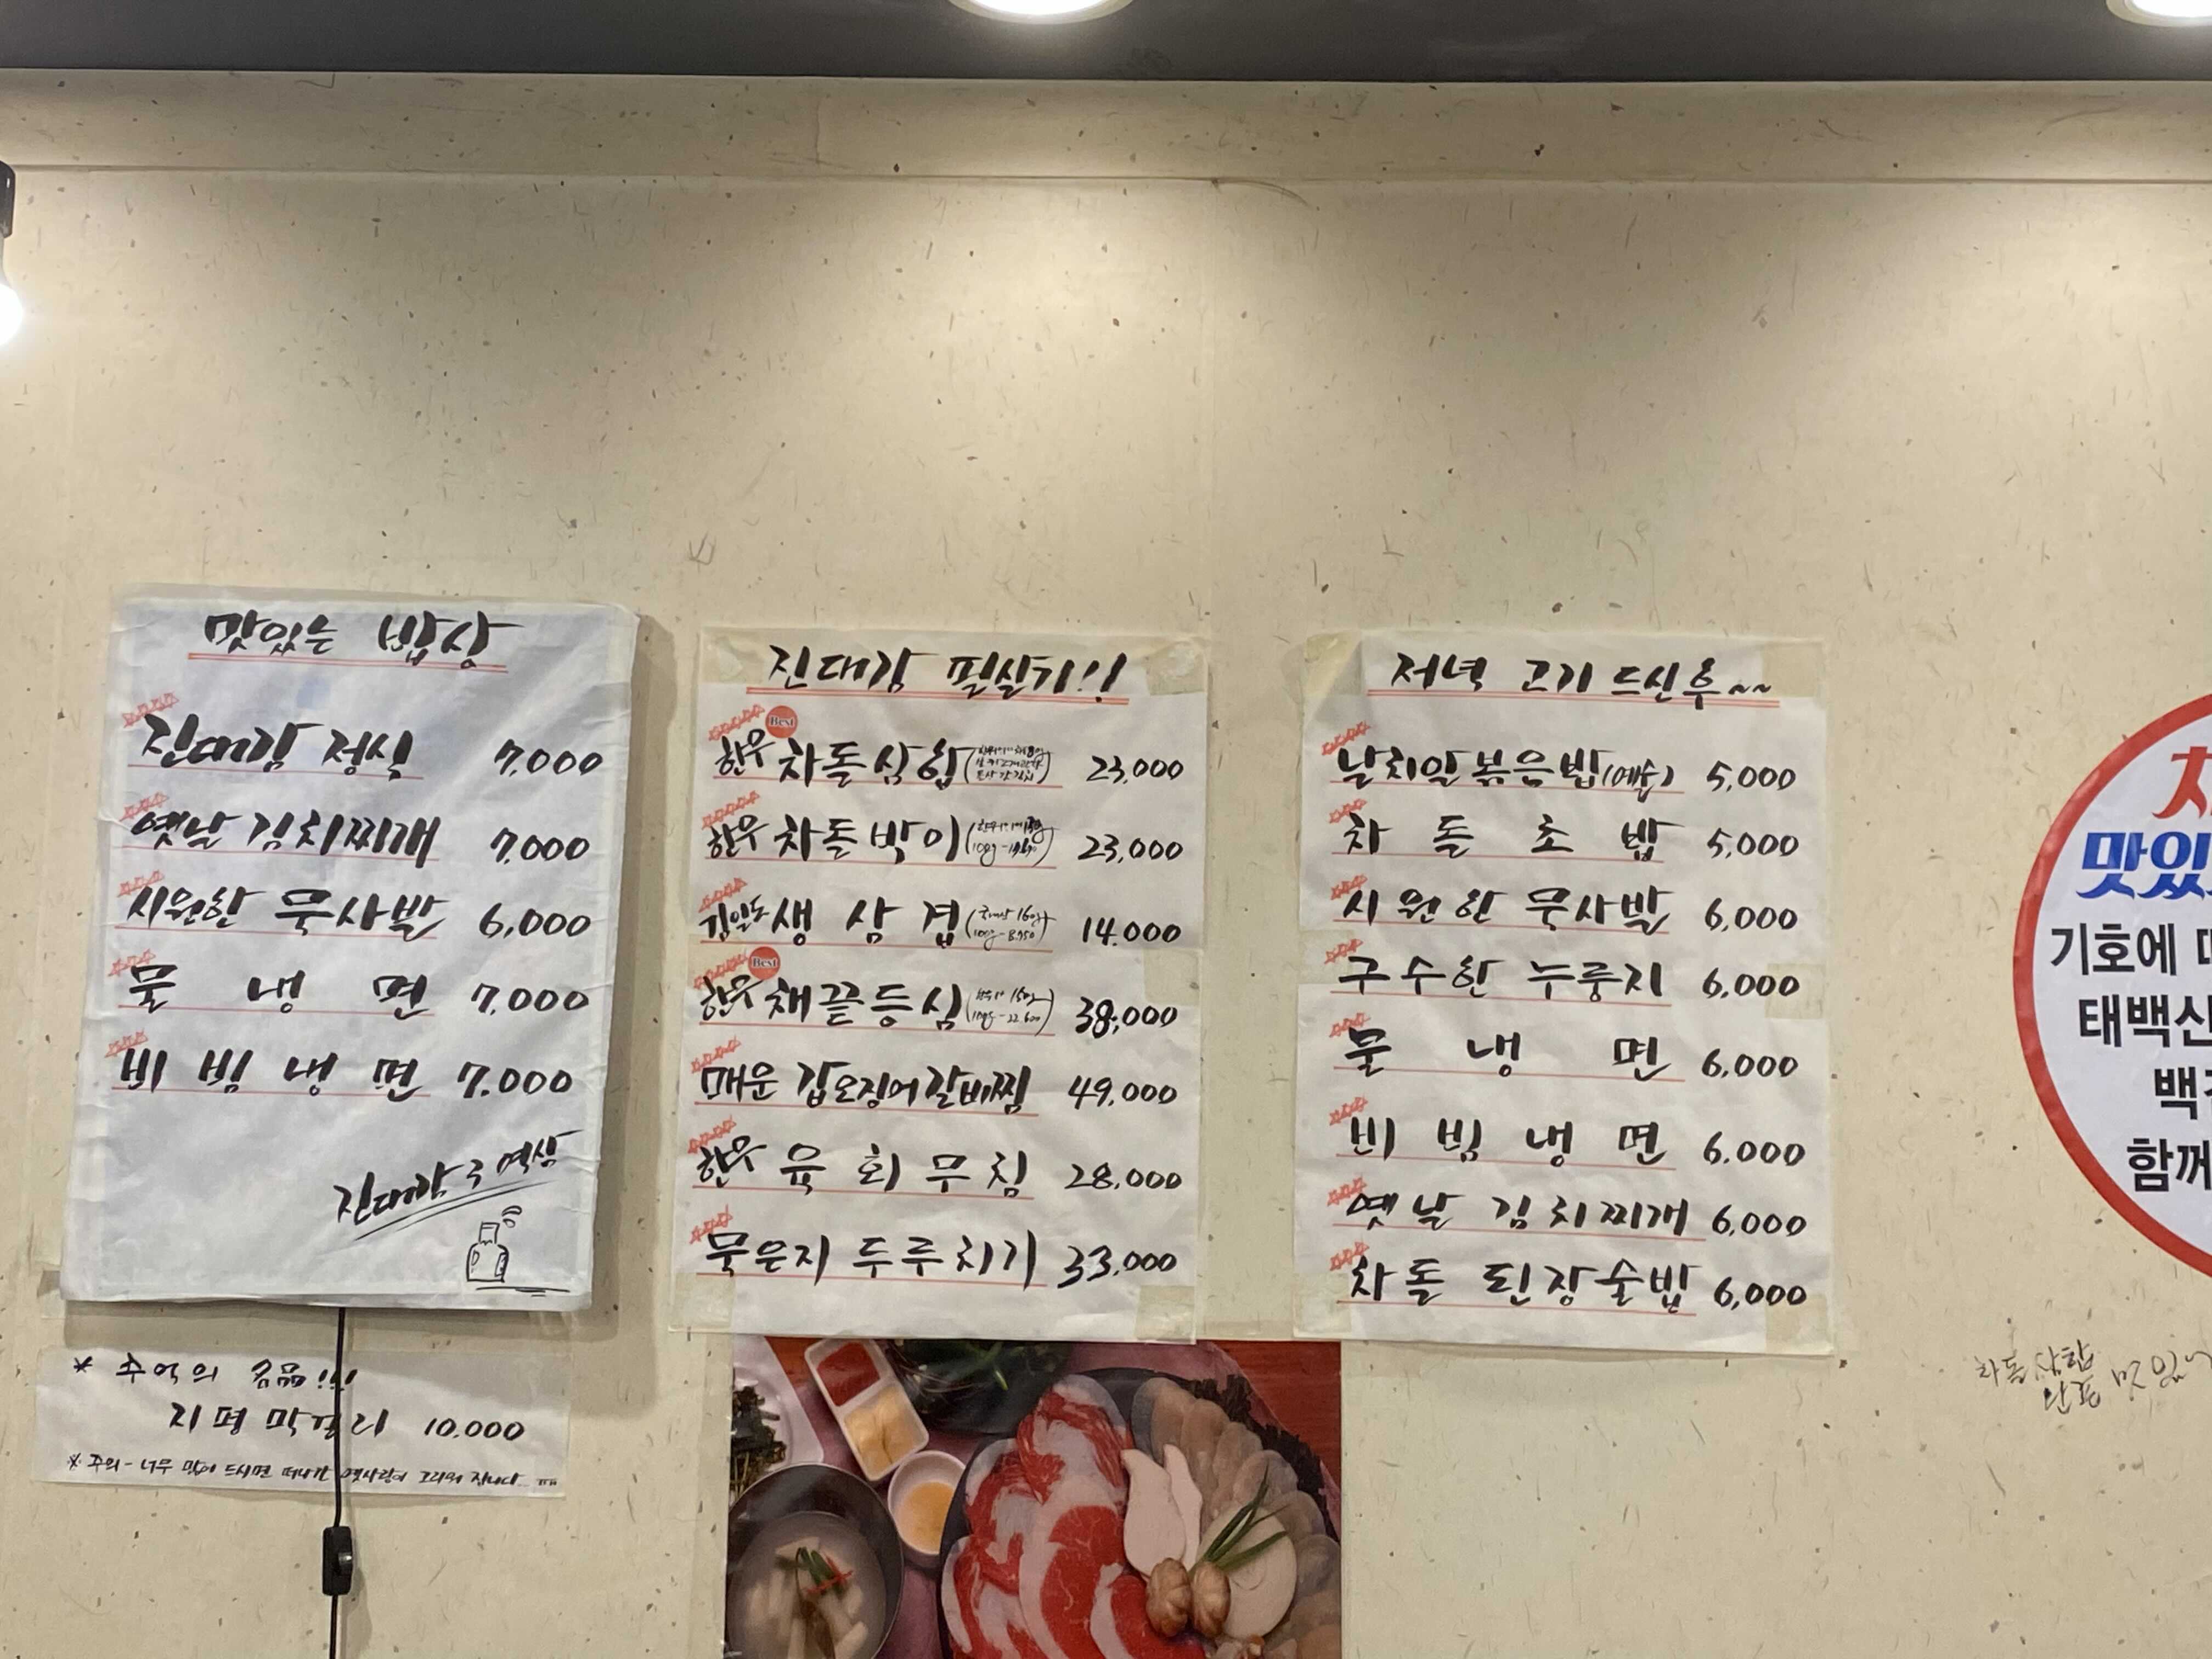 맛있는 밥상
진대감 정식 7,000
옛날 김치찌개 7,000
시원한 묵사발 6,000
물 냉 면 7,000
비 빔 냉 면 7,000
진대감
* 추억의 名品!!!
지평막걸리 10,000
* 주의 - 너무 많이 드시면 떠나간 옛사랑이 그리워 집니다... ㅠㅠ
진대감 필살기!!
Best
한우 차돌삼합 23,000
한우 차돌박이 23,000
김일도 생 삼 겹 (국내산 160g 100g-8.750) 14.000
Best
한우 채끝등심 38,000
매운 갑오징어갈비찜 49,000
한우 육 회 무 침 28,000
묵은지 두루치기 33,000
저녁 고기 드신후~~
날치알볶은밥 5,000
차 돌 초 밥 5,000
시 원 한 묵사발 6,000
구 수 한 누룽지 6,000
물 냉 면 6,000
비 빔 냉 면 6.000
옛 날 김 치 찌개 6,000
차 돌 된 장 술 밥 6,000
맛있
기호에
태백산
백
함께
차돌삼합